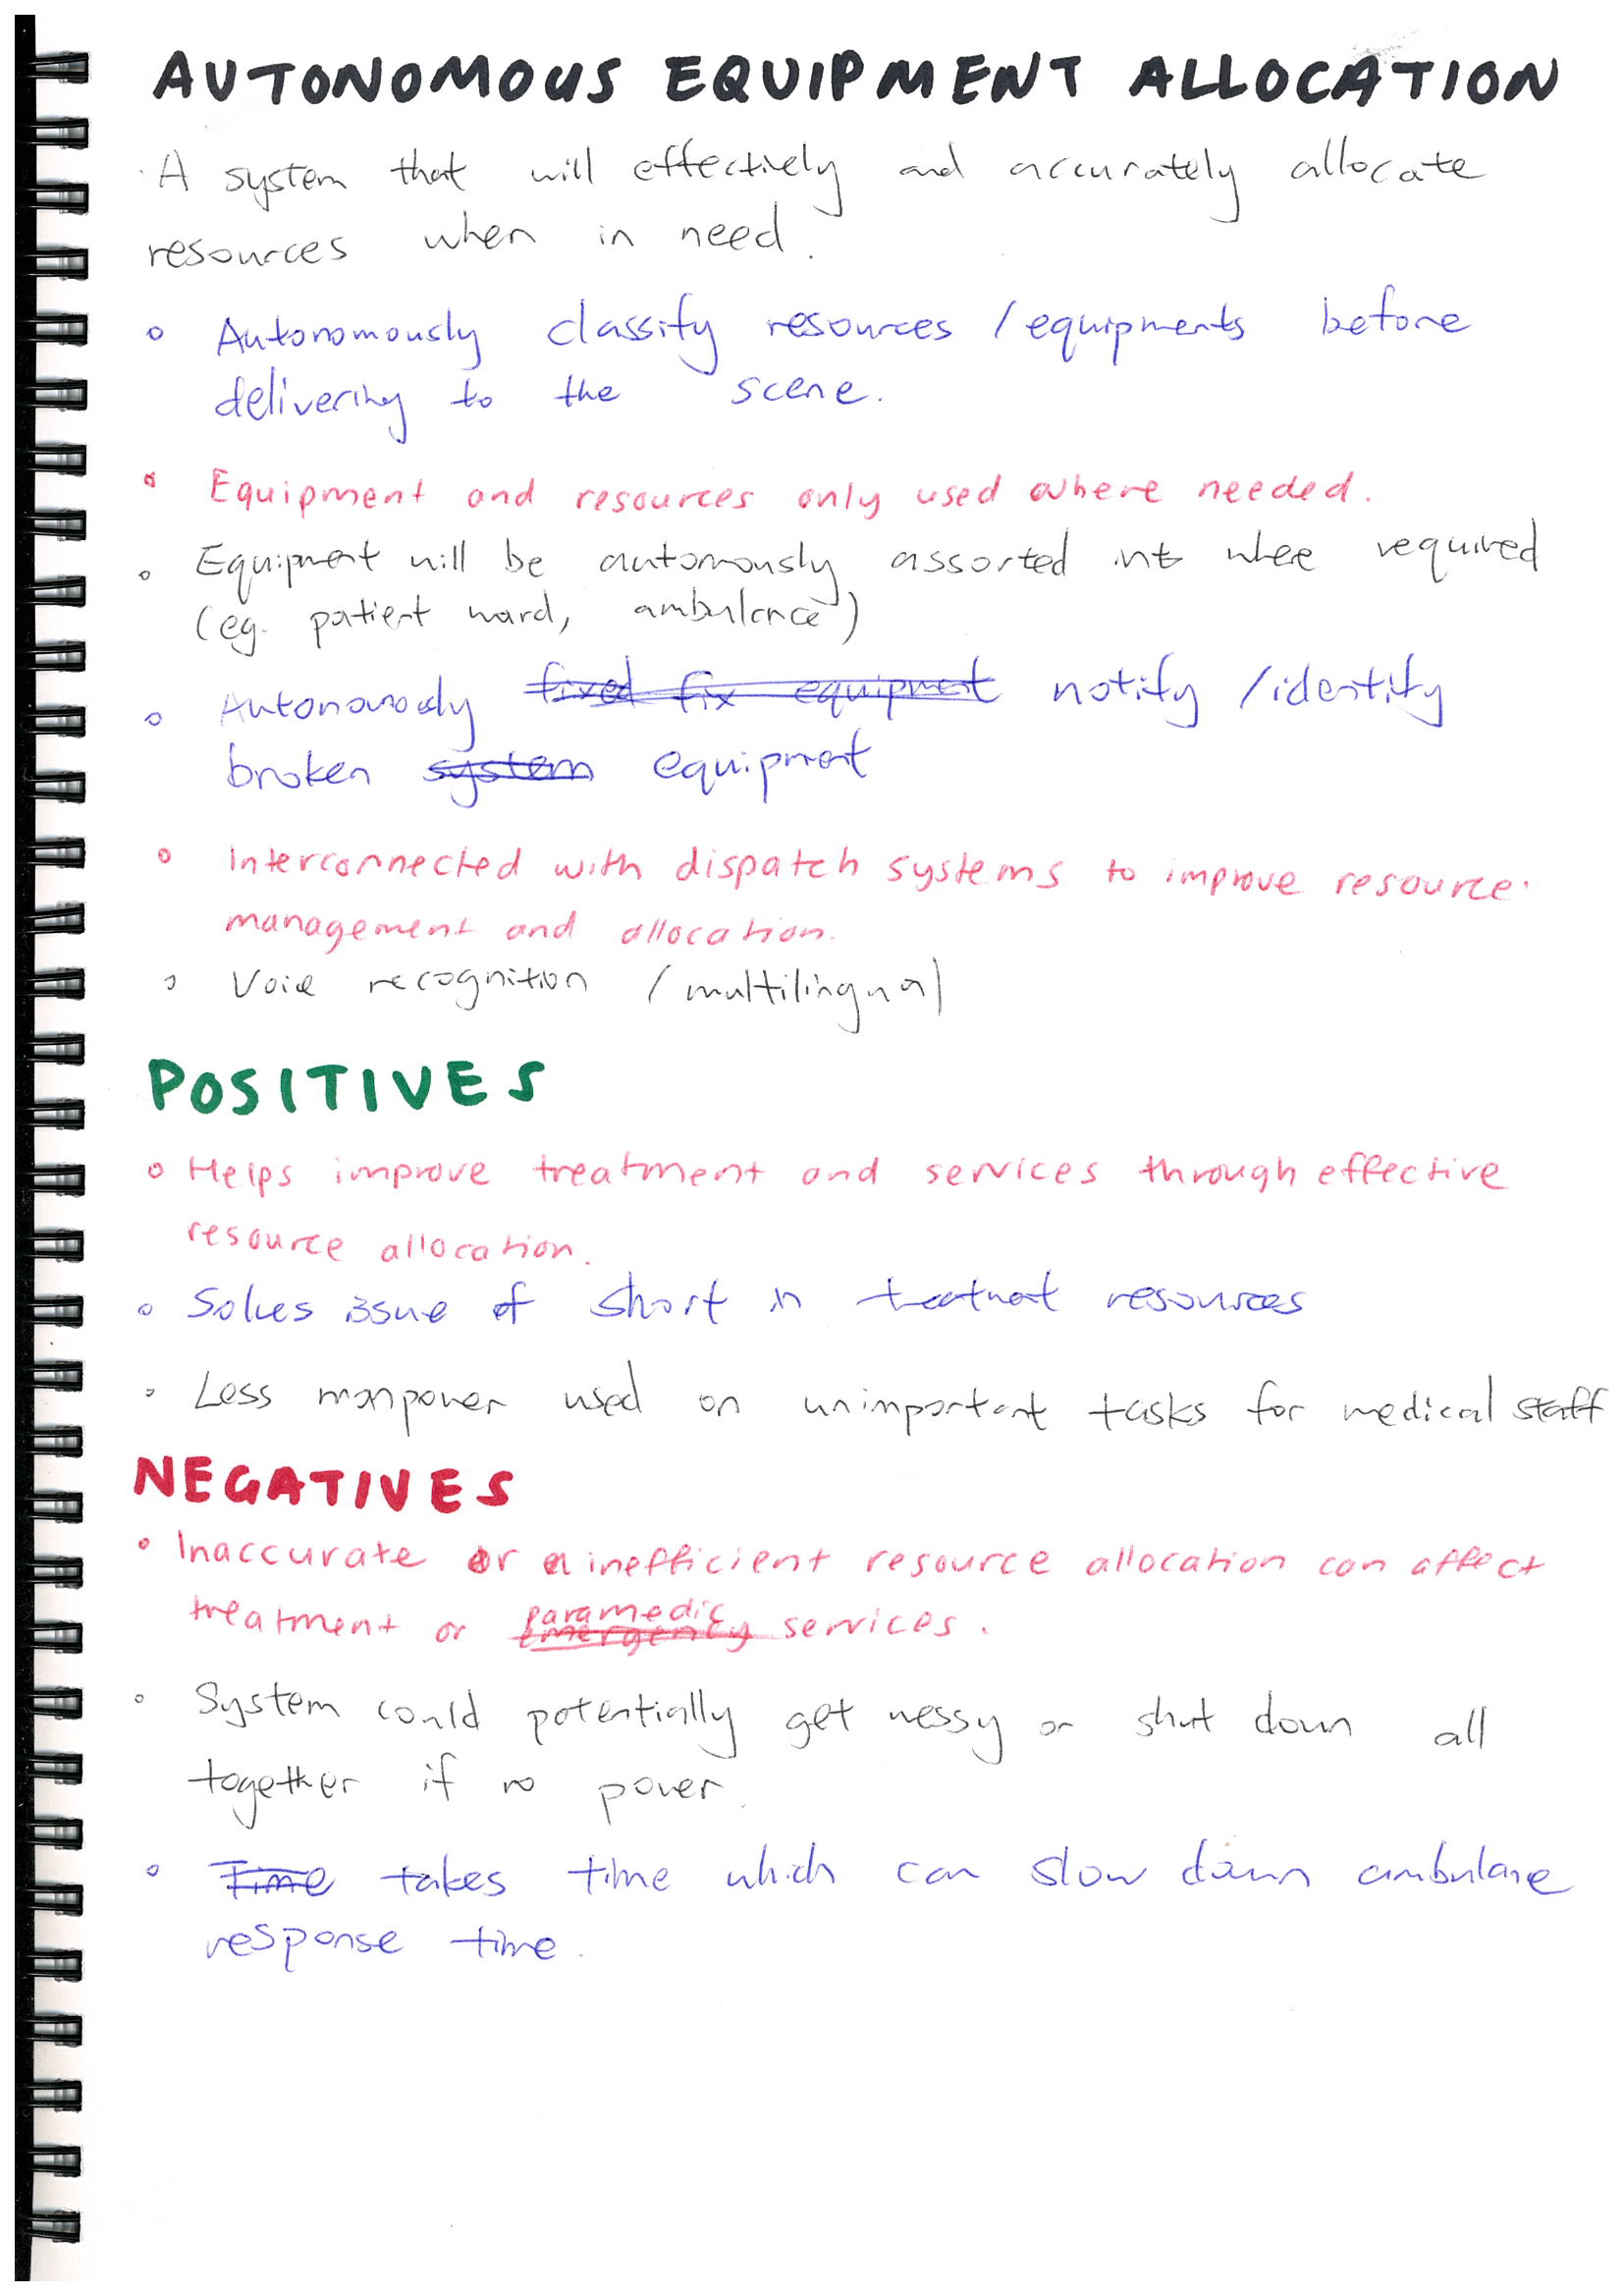 AUTONOMOUS EQUIPMENT ALLOCATION
· A system that will effectively and accurately allocate
resources when in need.
◦ Autonomously classify resources / equipments before
delivering to the scene.
◦ Equipment and resources only used where needed.
◦ Equipment will be automously assorted int where required
(eg. patient ward, ambulance)
◦ Autonomously ~~fixed fix equipment~~ notify / identify
broken ~~system~~ equipment
◦ Interconnected with dispatch systems to improve resource
management and allocation.
◦ Voice recognition / multilingual
POSITIVES
◦ Helps improve treatment and services through effective
resource allocation.
◦ Solves issue of short in treatment resources
◦ Less manpower used on unimportant tasks for medical staff
NEGATIVES
◦ Inaccurate or inefficient resource allocation can affect
treatment or ~~emergency~~ paramedic services.
◦ System could potentially get messy or shut down all
together if no power.
◦ ~~Time~~ takes time which can slow down ambulance
response time.